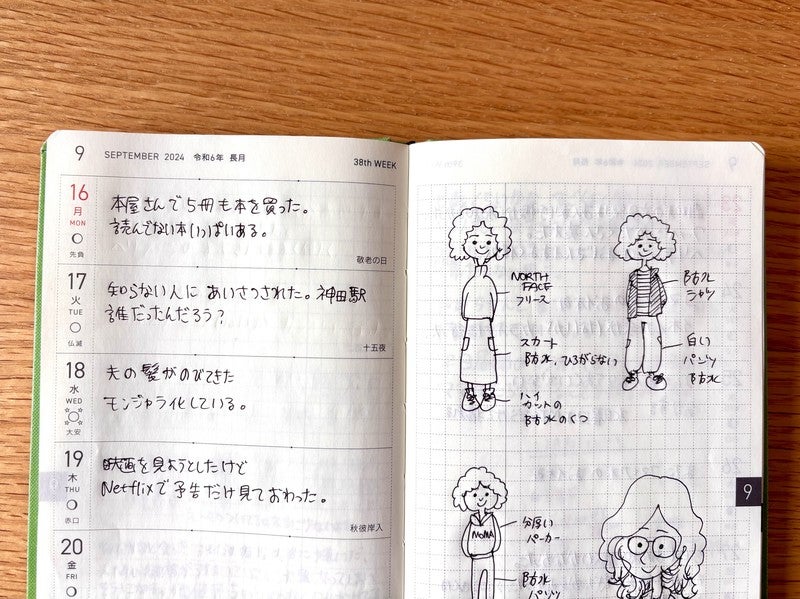 9 SEPTEMBER 2024 令和6年 長月 38th WEEK
16 月 MON 先負
本屋さんで5冊も本を買った。
読んでない本いっぱいある。
敬老の日
17 火 TUE 仏滅
知らない人にあいさつされた。神田駅
誰だったんだろう?
十五夜
18 水 WED 大安
夫の髪がのびてきた
モンジャラ化している。
19 木 THU 赤口
映画を見ようとしたけど
Netflixで予告だけ見ておわった。
秋彼岸入
20 金 FRI
NORTH
FACE
フリース
スカート
防水、ひろがらない
ハイ
カットの
防水のくつ
防水
シャツ
白い
パンツ
防水
MoMA
分厚い
パーカー
防水
パンツ
9